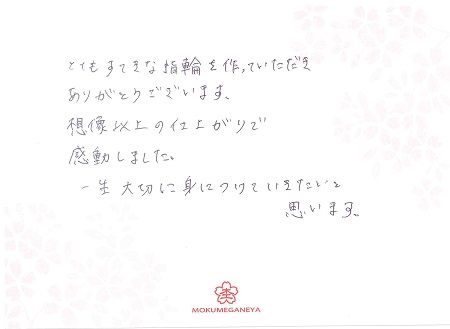 とてもすてきな指輪を作っていただき
ありがとうございます。
想像以上の仕上がりで
感動しました。
一生大切に身につけていきたいと
思います。
MOKUMEGANEYA